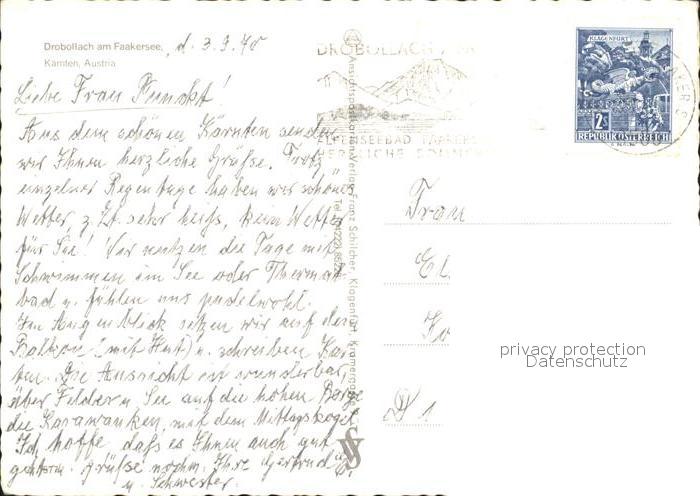 Drobollach am Faakersee,
Kärnten, Austria
d. 3.9.70
Liebe Frau
Aus dem schönen Kärnten senden
wir Ihnen herzliche Grüße. Trotz
einzelner Regentage haben wir schönes
Wetter, z. Zt. sehr heiß, kein Wetter
für Sie! Wir nutzen die Tage mit
Schwimmen im See oder Thermal-
bad u. fühlen uns pudelwohl.
Im Augenblick sitzen wir auf dem
Balkon (mit Hut) u. schreiben Kar-
ten. Die Aussicht ist wunderbar,
über Felder u. See auf die hohen Berge
die Karawanken, mit dem Mittagskogel.
Ich hoffe, daß es Ihnen auch gut
geht. Grüße nochm. Ihre Gertrud
u. Schwester.
Ansichtspostkarten-Verlag Franz Schilcher, Klagenfurt
DROBOLLACH
FAAKERS
KLAGENFURT
2S
REPUBLIK ÖSTERREICH
Frau
El
Ko
D 1
privacy protection
Datenschutz